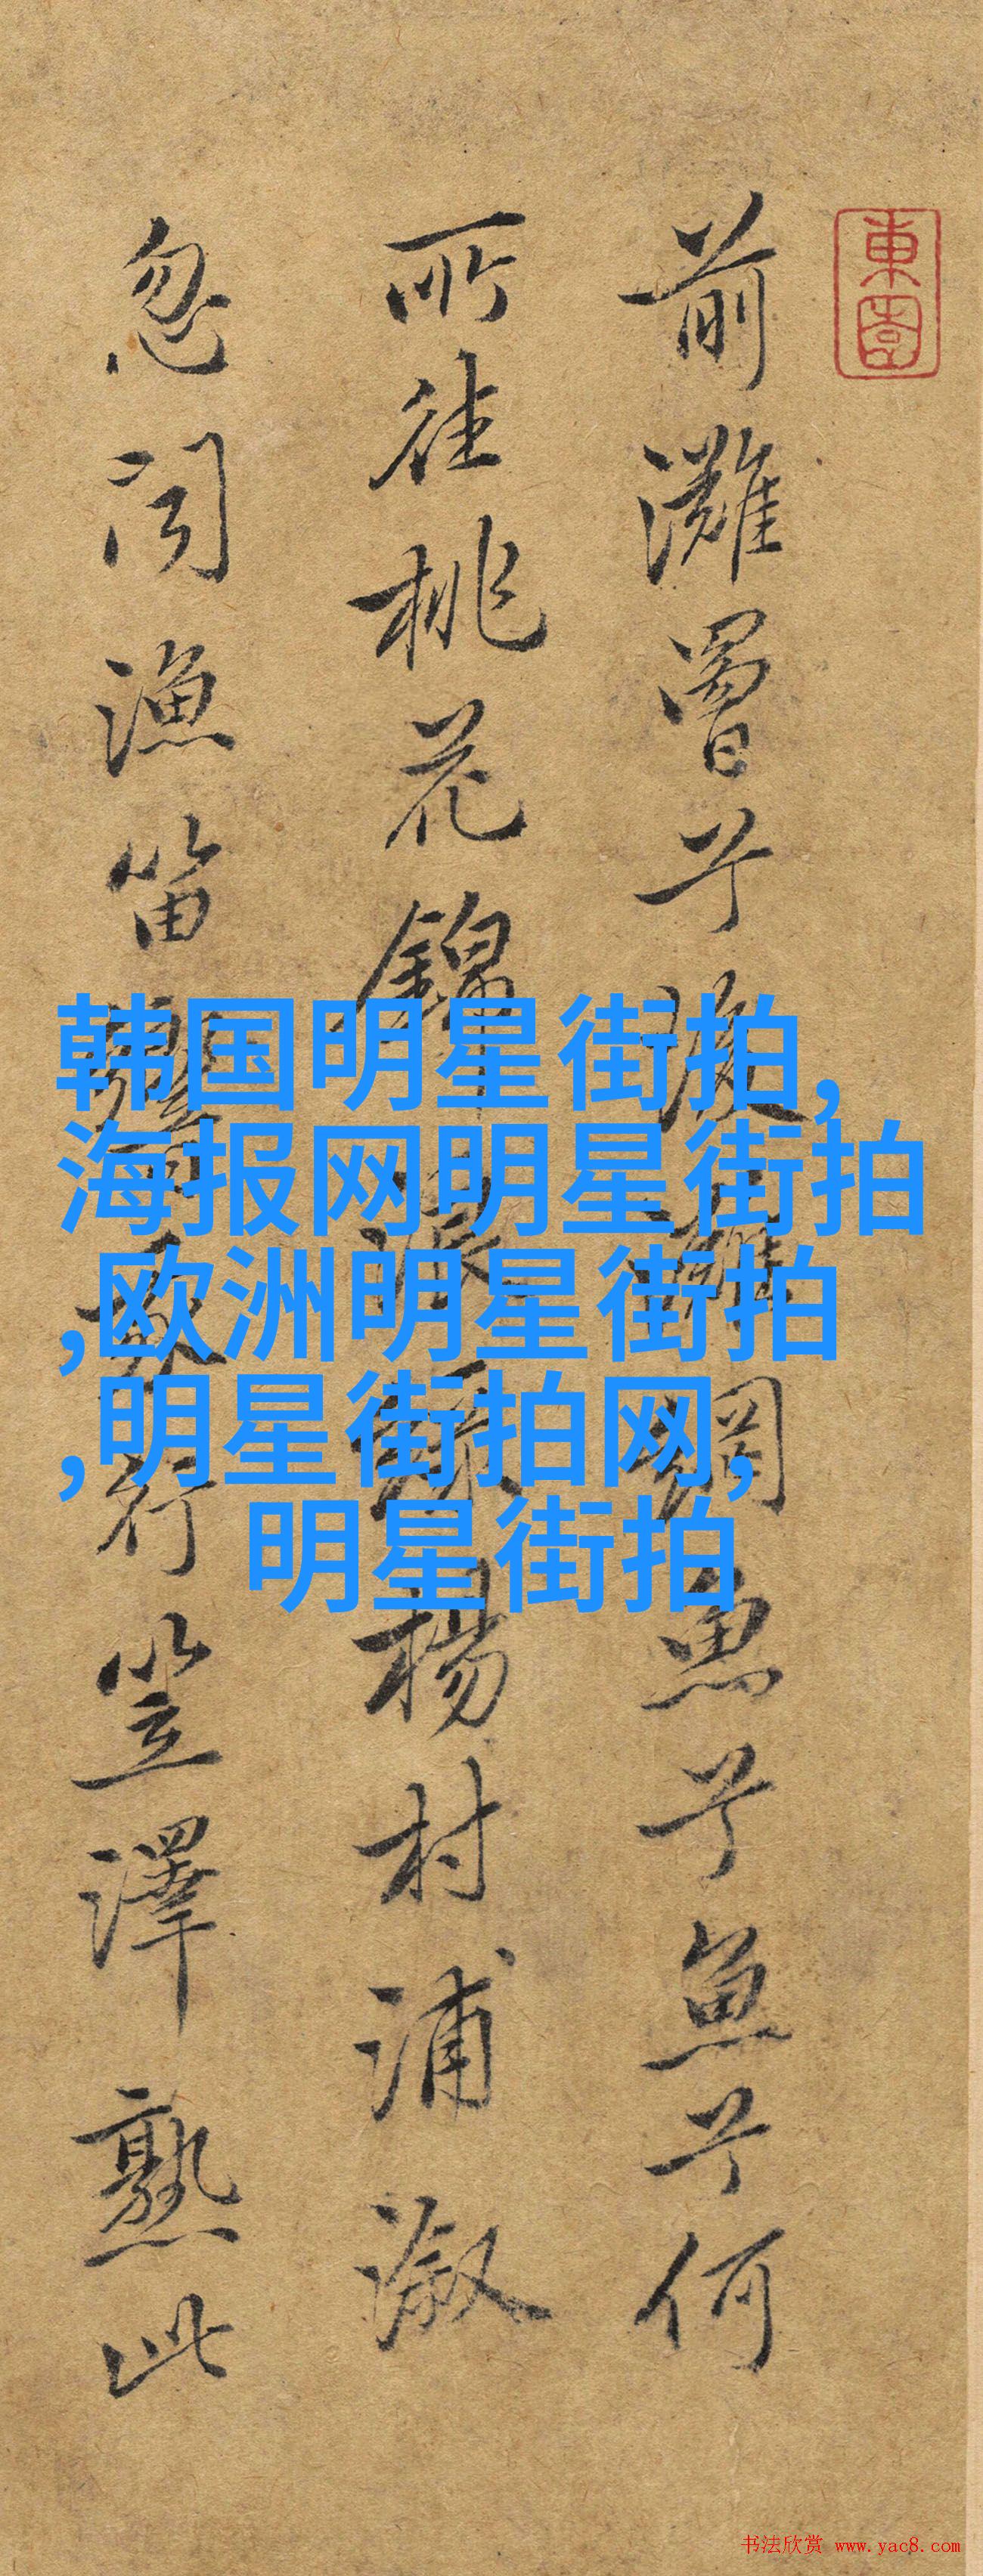 東
前灘罾兮後灘網魚兮魚兮何
所往桃花錦浪綠楊村浦溆
忽聞漁笛響我行笠澤熟此
韩国明星街拍,
海报网明星街拍
,欧洲明星街拍
,明星街拍网,
明星街拍
书法欣赏 www.yac8.com